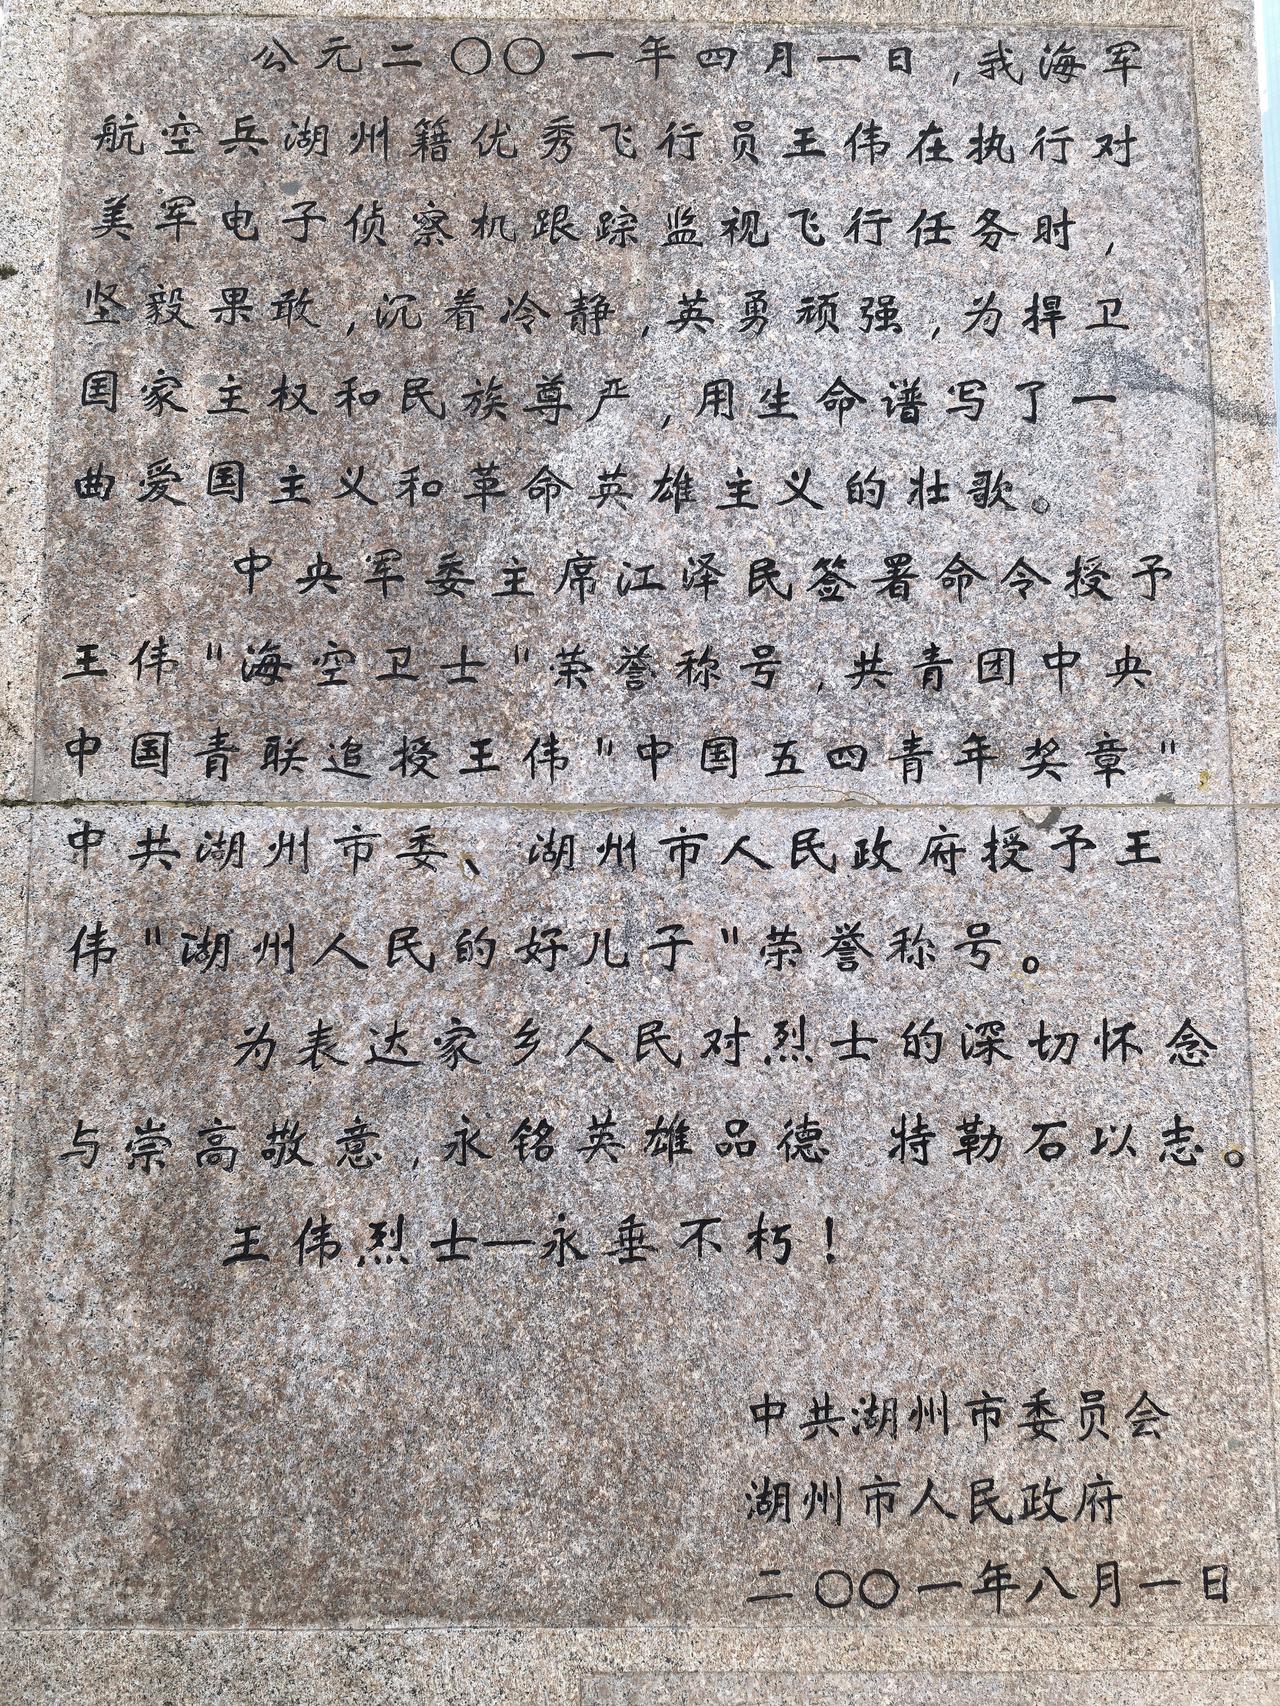 公元二〇〇一年四月一日,我海军
航空兵湖州籍优秀飞行员王伟在执行对
美军电子侦察机跟踪监视飞行任务时,
坚毅果敢,沉着冷静,英勇顽强,为捍卫
国家主权和民族尊严,用生命谱写了一
曲爱国主义和革命英雄主义的壮歌。
中央军委主席江泽民签署命令授予
王伟"海空卫士"荣誉称号,共青团中央
中国青联追授王伟"中国五四青年奖章"
中共湖州市委、湖州市人民政府授予王
伟"湖州人民的好儿子"荣誉称号。
为表达家乡人民对烈士的深切怀念
与崇高敬意,永铭英雄品德 特勒石以志。
王伟烈士—永垂不朽!
中共湖州市委员会
湖州市人民政府
二〇〇一年八月一日